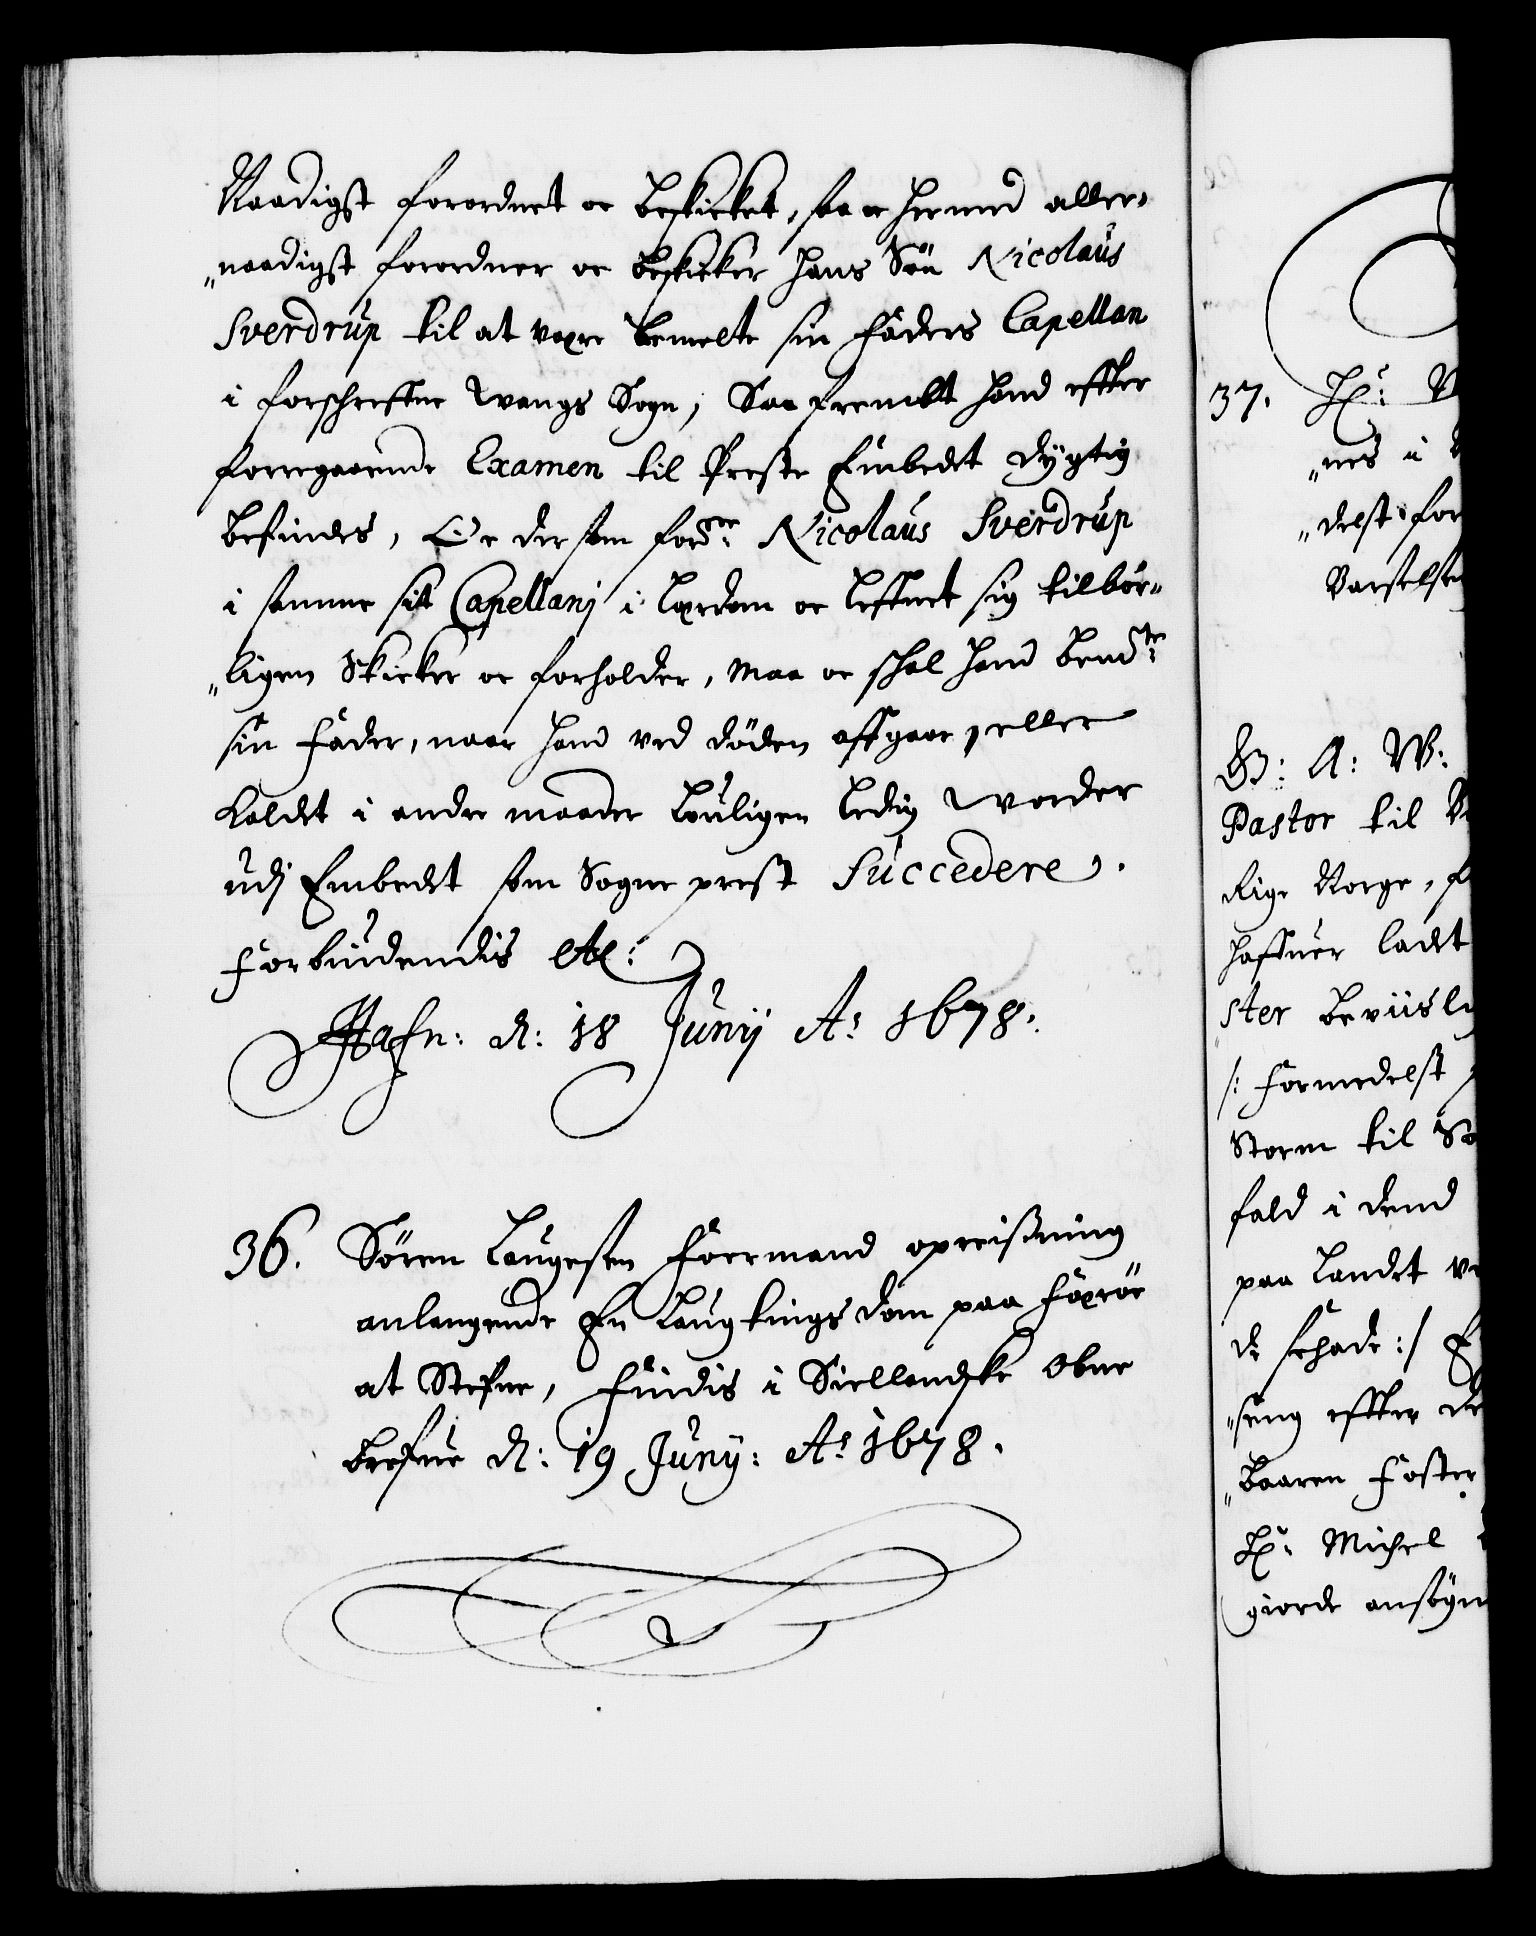 Naadigst forordnet oc beskicket, saa oc hermed aller-
„naadigst forordner oc beskicker hans Søn Nicolaus
Sverdrup til at være bemelte sin Faders Capellan
i forschreffne Wangs Sogn, Saafremt hand effter
foregaaende Examen til Preste Embedet dygtig
befindes, Oc dersom fordne: Nicolaus Sverdrup
i samme sit Capellanj i Lærdom oc Leffnet sig tilbør-
„ligen Skicker oc forholder, maa oc schal hand bemdte:
sin Fader, naar hand ved döden affgaar, eller
Kaldet i andre maader louligen ledig worder
udj Embedet som Sogneprest Succedere.
Forbiudendis etc:
Hafn: d: 18 Junij Ao 1678.
36. Sören Laugesen Foermand opreisning
anlangende En Laugtings dom paa Föxröe
at Stefne, Findis i Siellandske Obne
brefue d: 19 Junij: Ao 1678.
37. Hr: N
„nes i
„delst for
Varselste
G: A: W:
Pastor til
Rige Norge, f
haffuer ladet
ster beviislig
/: Formedelst
Storm til Sø
fald i dend
paa Landet
de schade :/
„seng effter de
„baaren Foster
Hr: Michel
giorde ansögn